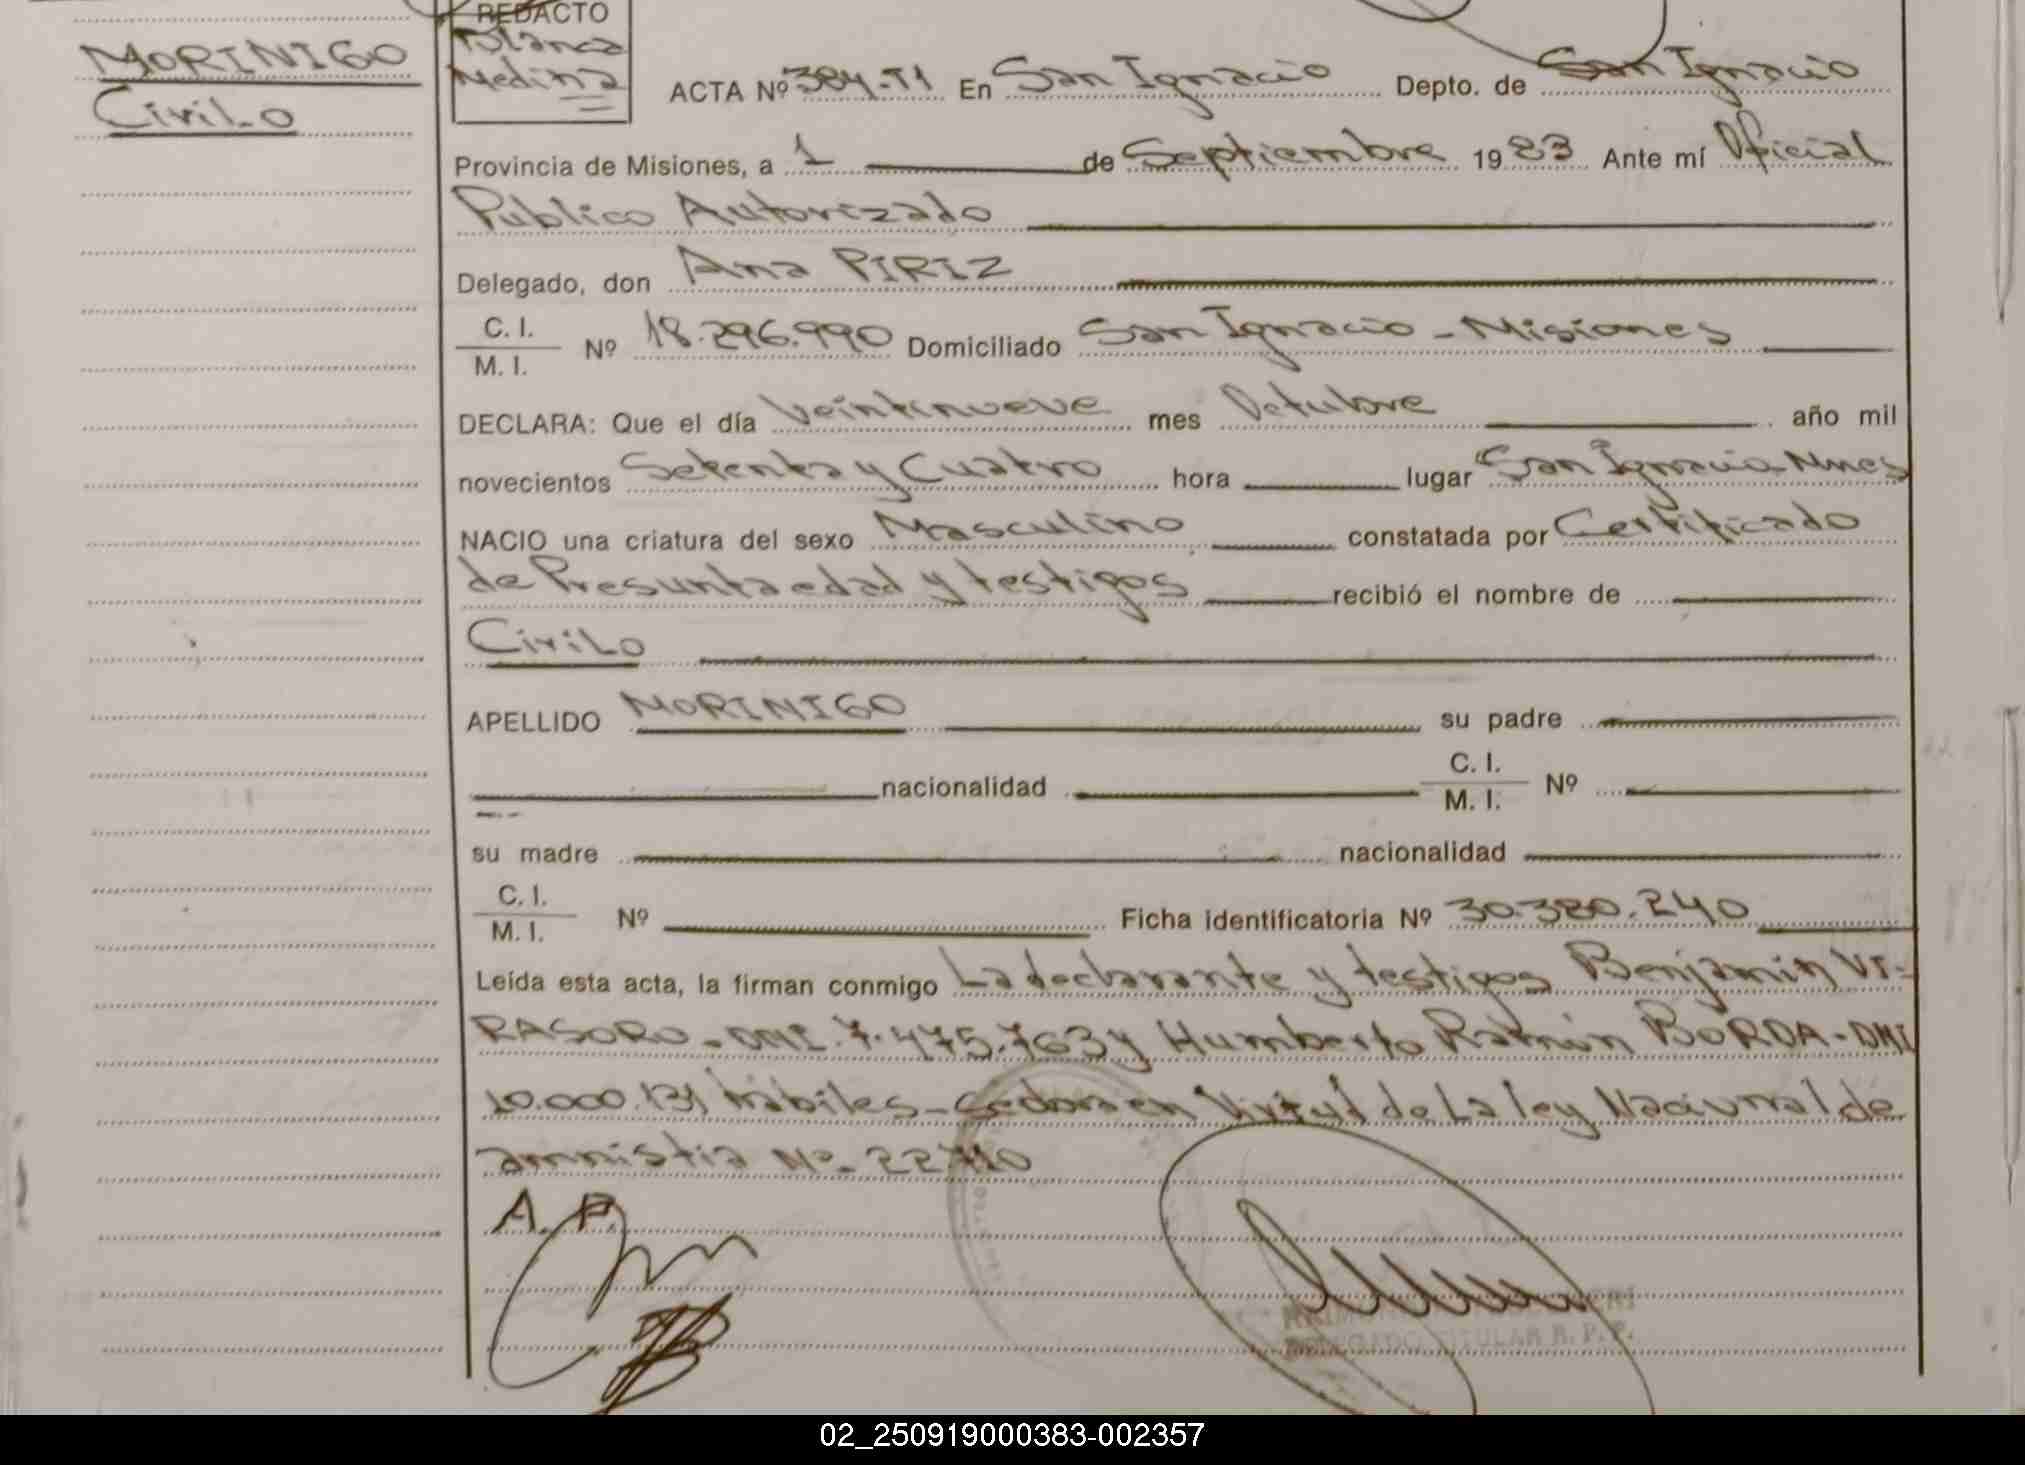 MORINIGO
Cirilo
REDACTO
Blanca
Medina
ACTA Nº 384-T1 En San Ignacio Depto. de San Ignacio
Provincia de Misiones, a 1 de Septiembre 1983 Ante mí Oficial
Publico Autorizado
Delegado, don Ana PIRIZ
C. I.
M. I. Nº 18.296.990 Domiciliado San Ignacio - Misiones
DECLARA: Que el día Veintinueve mes Octubre año mil
novecientos Setenta y Cuatro hora lugar San Ignacio Mnes
NACIO una criatura del sexo Masculino constatada por Certificado
de Presunta edad y testigos recibió el nombre de
Cirilo
APELLIDO MORINIGO su padre
nacionalidad C. I.
M. I. Nº
su madre nacionalidad
C. I.
M. I. Nº Ficha identificatoria Nº 30.380.240
Leída esta acta, la firman conmigo La declarante y testigos Benjamin VI-
RASORO - DNI. 7.475.763 y Humberto Ramón BORDA - DNI
10.000.131 hábiles - en Virtud de La ley Nacional de
amnistia Nº 22.710
A. P.
DELEGADO TITULAR R. P. P.
02_250919000383-002357